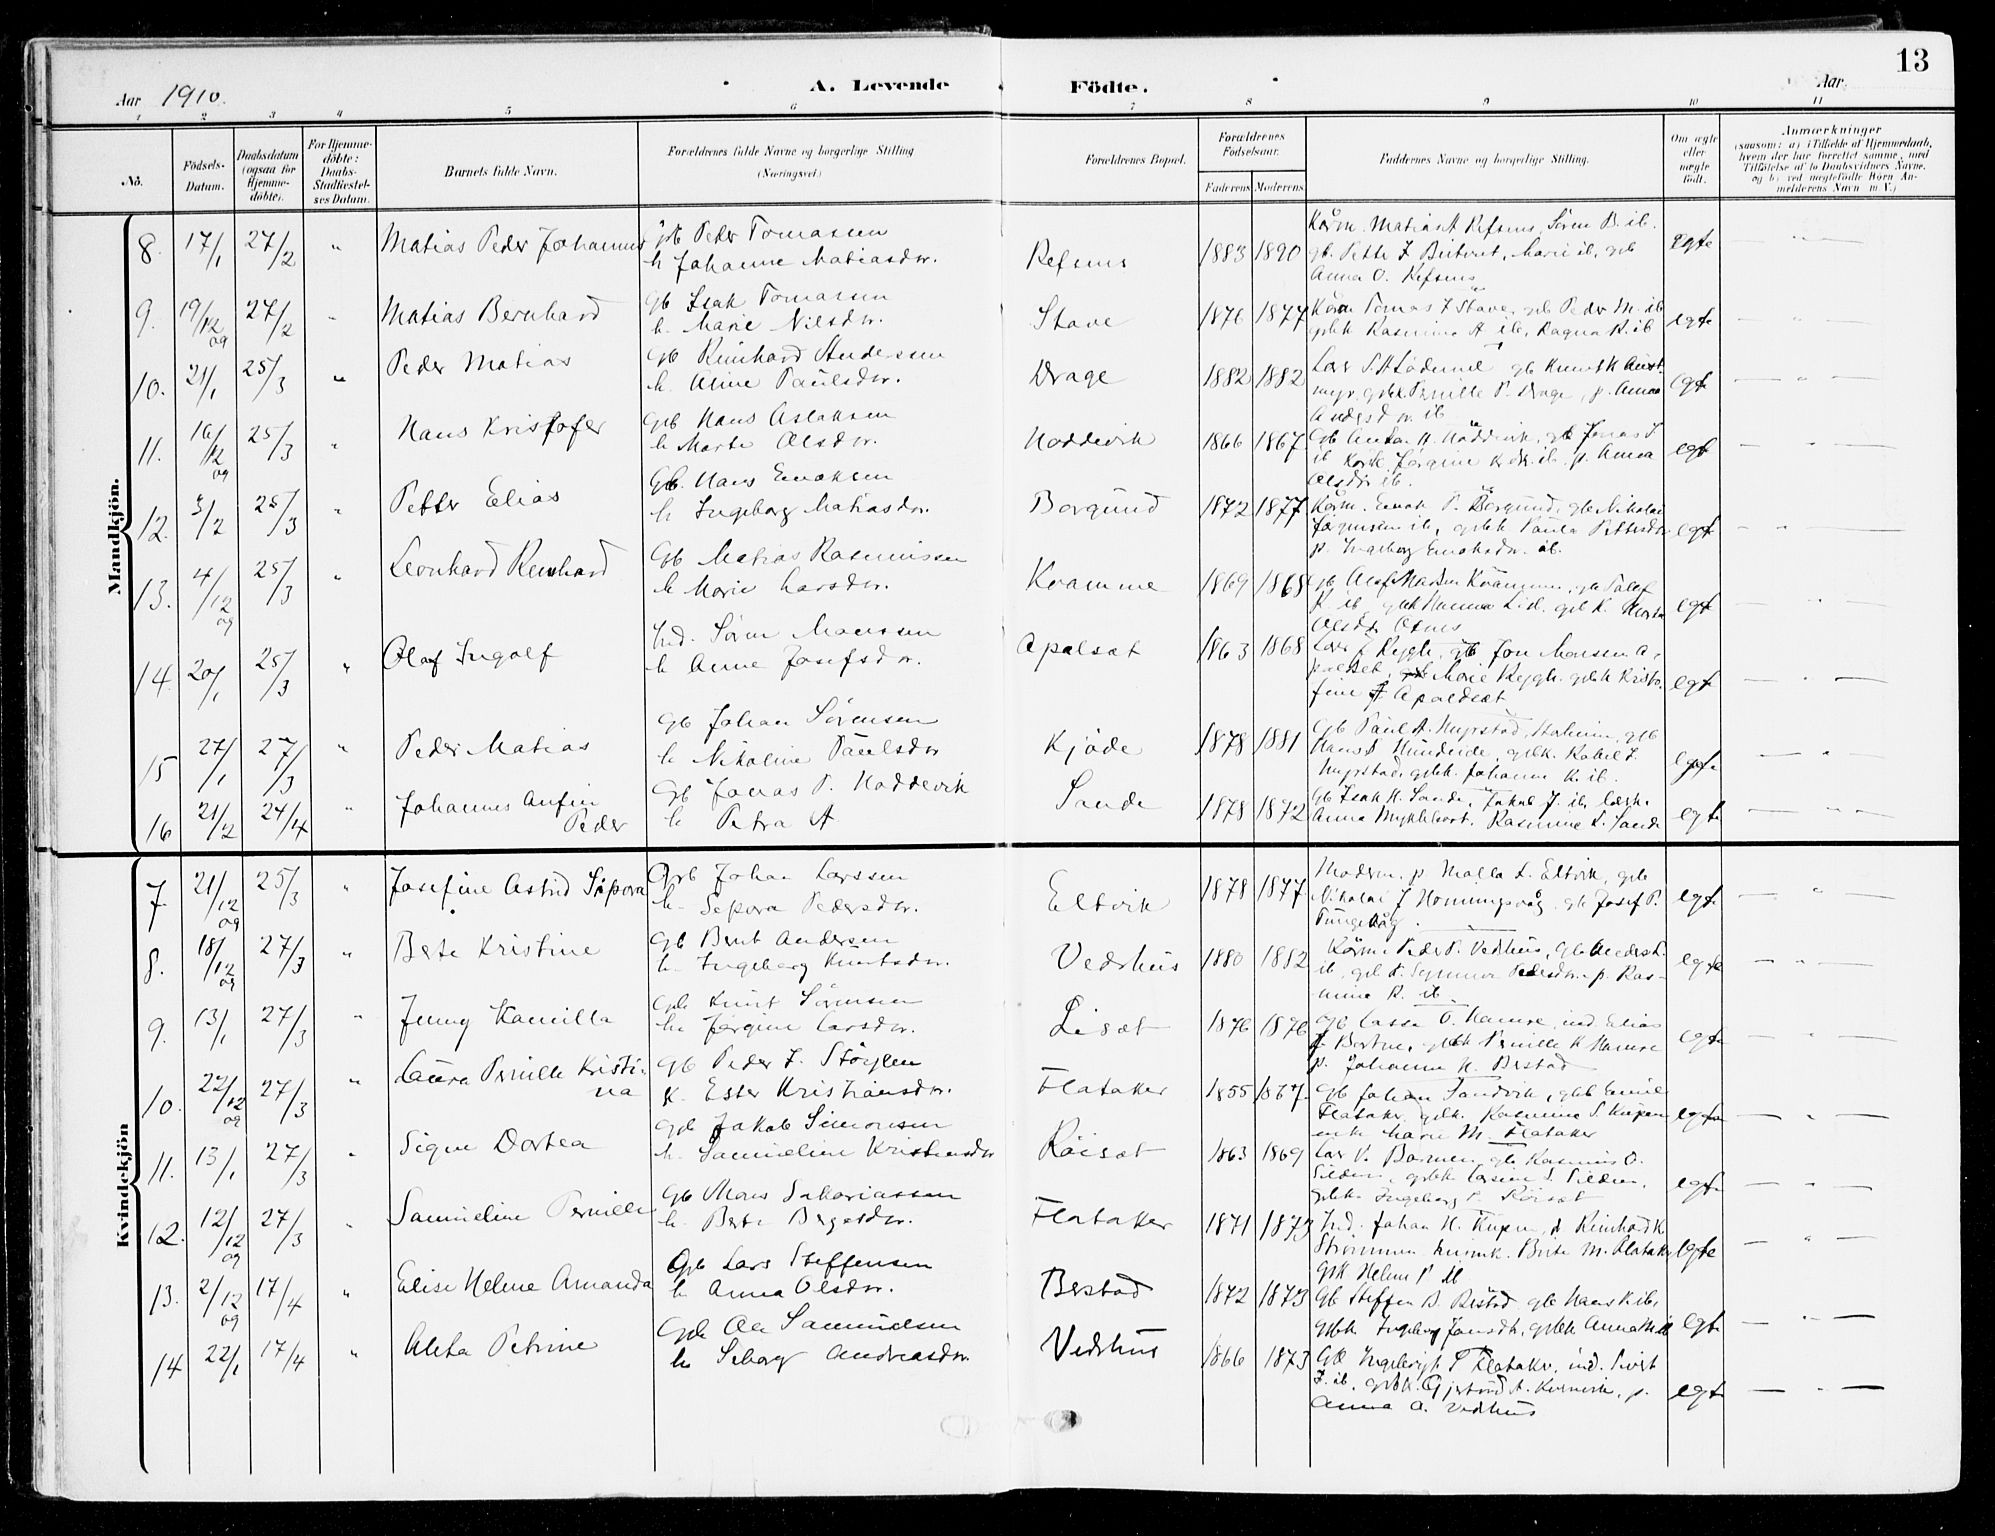 13
Aar 1910. A. Levende Födte. Aar
1 2 3 4 5 6 7 8 9 10 11
No.
Födsels-Datum.
Daabsdatum (ogsaa for Hjemme-döbte).
For Hjemme-döbte: Daabs-Stadfæstel-ses Datum.
Barnets fulde Navn.
Forældrenes fulde Navne og borgerlige Stilling (Næringsvei)
Forældrenes Bopæl.
Forældrenes Födselsaar.
Faderens Moderens
Faddernes Navne og borgerlige Stilling.
Om ægte eller uægte födt.
Anmærkninger
(saasom: a) i Tilfælde af Hjemmedaab,
hvem der har forrettet samme, med
Tilföielse af to Daabsvidners Navne,
og b) ved uægtefödte Börn An-
melderens Navn m. V.)
Mandkjön.
8. 17/1 27/2 " Matias Peder Johannes
gb Peder Tomassen
h Johanne Matiasdr.
Refsnes 1883 1890
Kårm. Matias A Refsnes, Sören B. ib.
gb. Petter J , Marie ib, gb
Anna O. Refsnes
egte
9. 19/12 09 27/2 " Matias Bernhard
Gb Isak Tomassen
h. Marie Nilsdr.
Stave 1876 1877
Kårm Tomas I Stave, gb Peder M. ib
gbk Rasmine A ib, Ragna R. ib
egte
10. 21/1 25/3 " Peder Matias
Gb Reinhard Andersen
h. Aline Paulsdr.
Drage 1882 1882
Lars
gbk Pernille P. Drage, p. Anna
Andersdr ib
egt
11. 16/12 09 25/3 " Hans Kristofer
Gb Hans Aslaksen
h Marte Olsdr.
Hoddevik 1866 1867
Gb Anton H. Hoddevik, gb Jonas J.
ib Kårk Jørgine ib. p. Anna
Olsdr ib.
egt
12. 3/2 25/3 " Petter Elias
Gb. Hans Enoksen
h Ingeborg Matiasdr.
Borgund 1872 1877
Kårm. Enok P. Borgund, gb Nikolai
Jørgensen ib, gbk Paula Pettersdr
p. Ingeborg Enoksdr. ib.
egt
13. 4/12 09 25/3 " Leonhard Reinhard
Gb Matias Rasmussen
h Marie Larsdr.
Kvamme 1869 1868
gb Olaf Kvamme, gb
ib, gbk Hanna ib. gbk Marta
Olsdr Osnes
egt
14. 20/1 25/3 " Olaf Ingolf
Ind. Sören Monssen
h Anne Josefsdr.
Apalset 1863 1868
Lars J Rygh, gb Jon Monsen A-
palset, Marie Rygh. gbk Kristo-
fine Apaldset
egt
15 27/1 27/3 " Peder Matias
gb Johan Sörensen
h Nikoline Paulsdr
Kjöde 1878 1881
Gb Paul A. Myrstad, Staheim, gb
Hans Hundeide, gbk. Rakel I.
Myrstad, gbk. Johanne K. ib.
egte
16 21/2 24/4 " Johannes Anfin
Peder
Gb Jonas P. Hoddevik
h Petra A
Sande 1878 1872
Gb Isak H. Sande, Jakob J. ib,
Anna Myklebost, Rasmine L. Sande
egte
Kvindekjön
7 21/12 09 25/3 " Josefine Astrid Sepora
Gb Johan Larssen
h. Sepora Pedersdr.
Eltvik 1878 1877
Moderen, p Malla L. Eltvik, gb
Nikolai J Honningsvåg, gb Josef P.
Tungevåg.
egte
8. 18/12 09 27/3 " Berte Kristine
Gb Bent Andersen
h. Ingeborg Knutsdr.
Vedshus 1880 1882
Kårm Peder P. Vedhus, gb Anders
ib, gbk Pedersdr. p. Ras-
mine R. ib
egte
9. 13/1 27/3 " Jenny Kamilla
Gb Knut Sörensen
h Jørgine Larsdr.
Lisæt 1876 1876
Gb Lasse O. Hamre, ind. Elias
J Bortne, gbk Pernille K Hamre
p. Johanna H. Berstad
egte
10. 22/12 09 27/3 " Laura Pernille Kristi-
na
gb Peder J. Stöylen
k. Ester Kristiansdr.
Flatåker 1855 1867.
Gb Johan Sandvik, gb Emil
Flatåker, gbk. Rasmine S.
enke Marie M. Flatåker
egte
11. 13/1 27/3 " Signe Dortea
gb Jakob Simonsen
h. Samueline Kristensdr
Röiset 1863 1869
Lars V. Barmen, gb Rasmus O.
Silden, gbk Larsine S. Silden,
gbk Ingeborg P. Röiset
egte
12. 12/12 09 27/3 " Samueline Pernille
Gb Mons Sakariassen
h. Berte Bergesdr.
Flatåker 1871 1873
Ind. Johan H. , Reinhard K
Strömmen, husmk. Berte M. Flatåker
Gbk Helene P ib
egte
13. 2/12 09 17/4 " Elise Helene Amanda
Gb Lars Steffensen
h Anna Olsdr.
Berstad 1872 1873
Gb Steffen B. Berstad, gb Hans K ib,
gbk Ingeborg Jonsdtr, gbk Anna M ib
egt.
14 22/1 17/4 " Aleta Petrine
Gb Ole Samuelsen
h Seborg Andreasdr.
Vedshus 1866 1873
Gb Ingebrigt P Flatåker, ind. Sivert
I. ib, gbk Gjertrud A. , p.
Anna A. Vedhus
egt